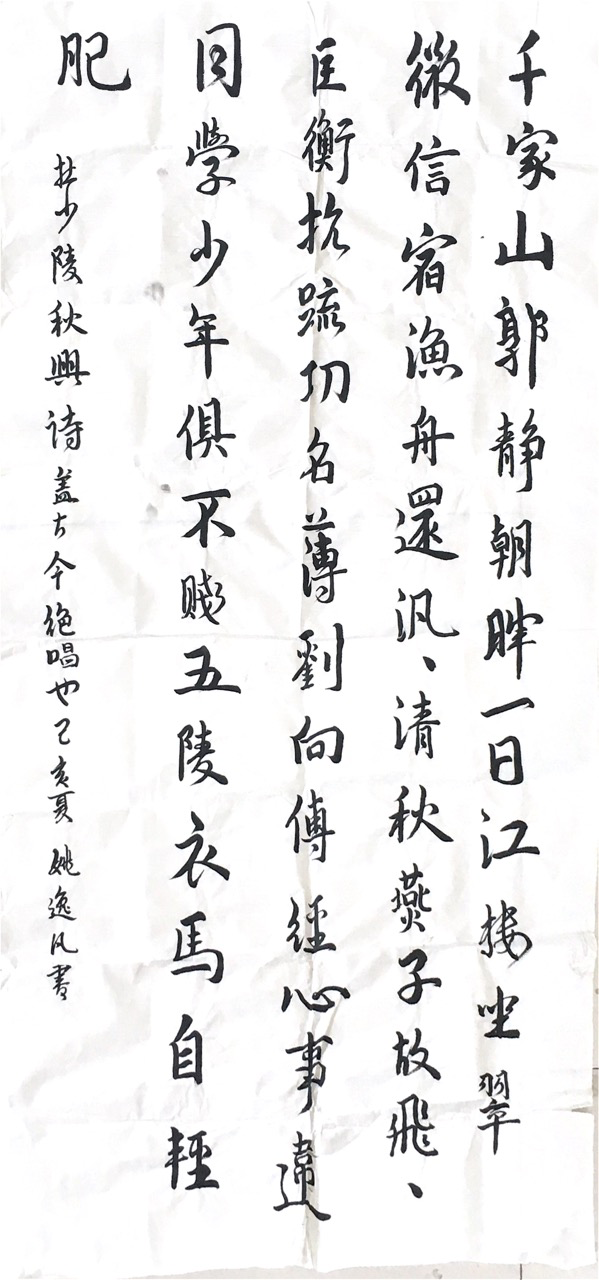 千家山郭静朝暉一日江楼坐翠
微信宿漁舟還汎、清秋燕子故飛、
匡衡抗疏功名薄劉向傳經心事違
同學少年俱不賤五陵衣馬自輕
肥
杜少陵秋興詩蓋古今絶唱也己亥夏姚逸凡書